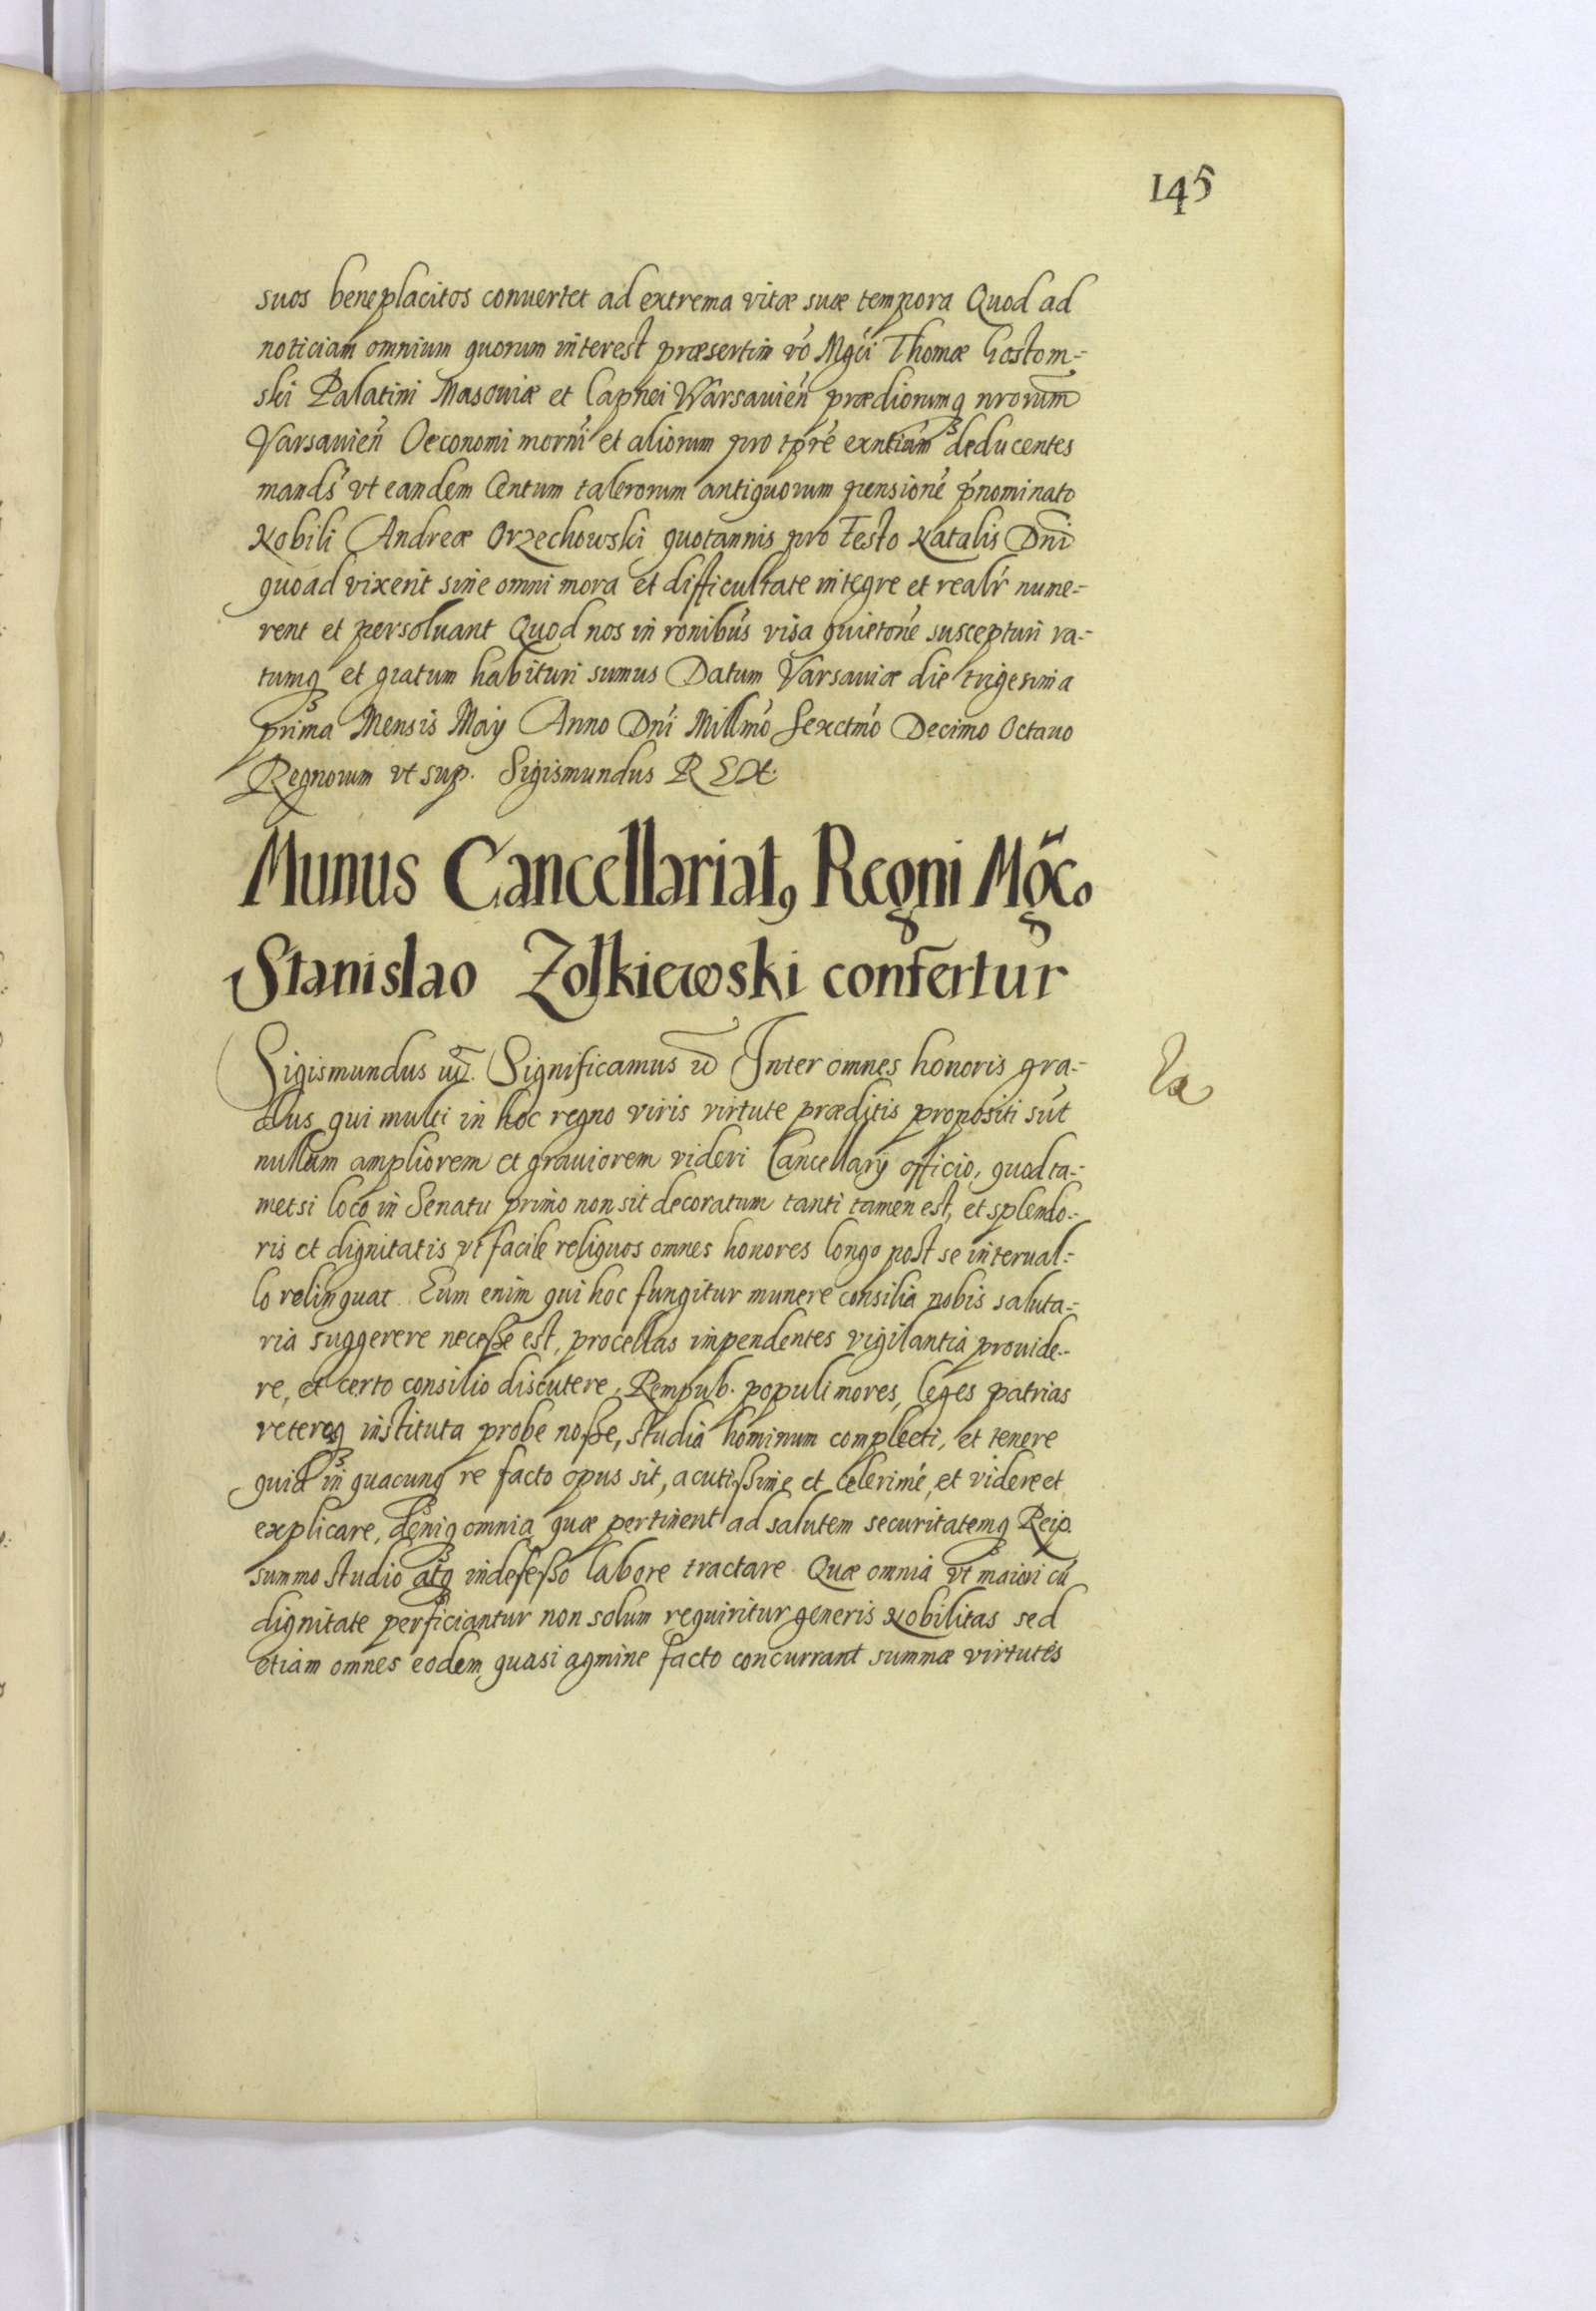 145
suos beneplacitos conuertet ad extrema vitæ suæ tempora Quod ad
noticiam omnium quorum interest præsertim vō Mgci Thomæ Gostom=
ski Palatini Masouiæ et Capnei Warsauien̄ prædiorumq nrorum
Varsauien̄ Oeconomi morni et aliorum pro tpre exntium deducentes
mands vt eandem Centum talerorum antiquorum pensione pnominato
Nobili Andreæ Orzechowski quotannis pro Festo Natalis Dni
quoad vixerit sine omni mora et difficultate integre et realr nume=
rent et persoluant Quod nos in ronibus visa quietone suscepturi ra=
tumq et gratum habituri sumus Datum Varsauiæ die trigesima
prima Mensis Maij Anno Dni Millmo Sexctmo Decimo Octauo
Regnorum vt sup. Sigismundus REX.
Munus Cancellariatꝰ Regni Mgco
Stanislao Zolkiewski confertur
Sigismundus Significamus Inter omnes honoris gra=
dus qui multi in hoc regno viris virtute præditis propositi sūt
nullum ampliorem et grauiorem videri Cancellarij officio, quod ta=
metsi loco in Senatu primo non sit decoratum tanti tamen est, et splendo=
ris et dignitatis vt facile reliquos omnes honores longo post se interual=
lo relinquat. Eum enim qui hoc fungitur munere consilia nobis saluta=
ria suggerere necesse est, procellas inpendentes vigilantia prouide=
re, et certo consilio discutere, Rempub. populi mores, leges patrias
veteresq instituta probe nosse, studia hominum complecti, et tenere
quid in quacunq re facto opus sit, acutissime et celerime, et videre et
explicare, deniq omnia quæ pertinent ad salutem securitatemq Reip.
summo studio atq indefesso labore tractare. Quæ omnia vt maiori cū
dignitate perficiantur non solum requiritur generis Nobilitas sed
etiam omnes eodem quasi agmine facto concurrant summæ virtutes